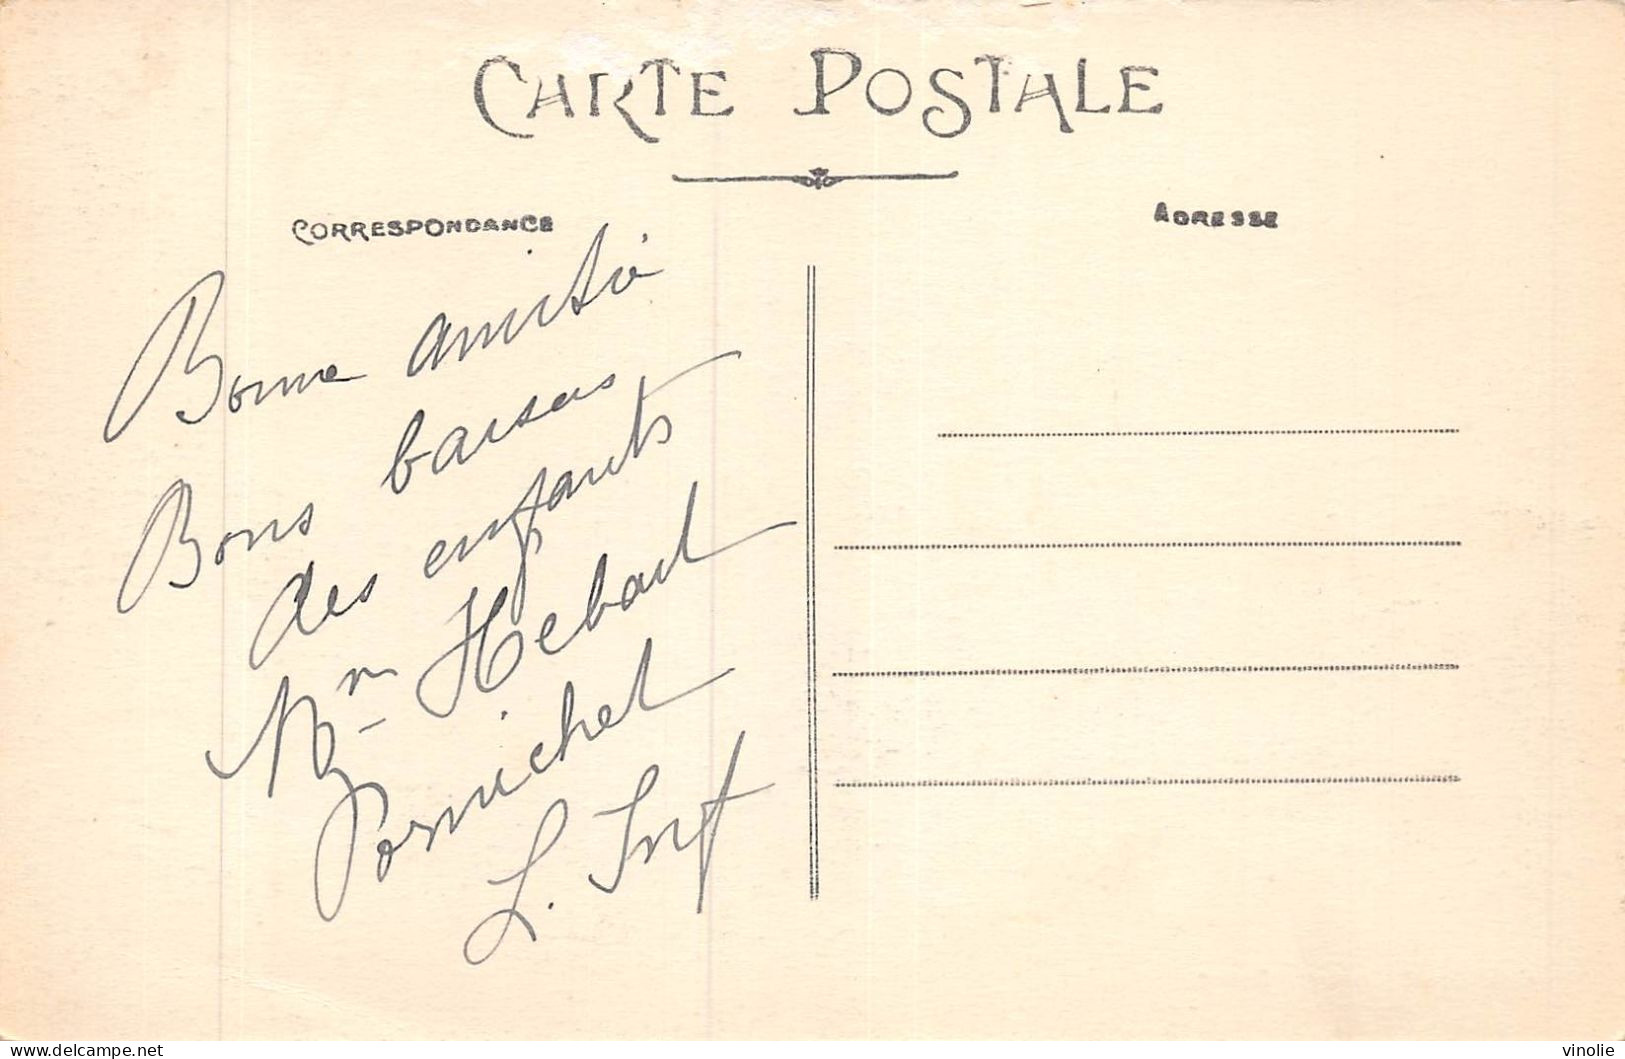 CARTE POSTALE
CORRESPONDANCE
ADRESSE
Bonne amitié
Bons baisers
des enfants
Hebail
Pornichet
L. Inf
www.delcampe.net
vinolie